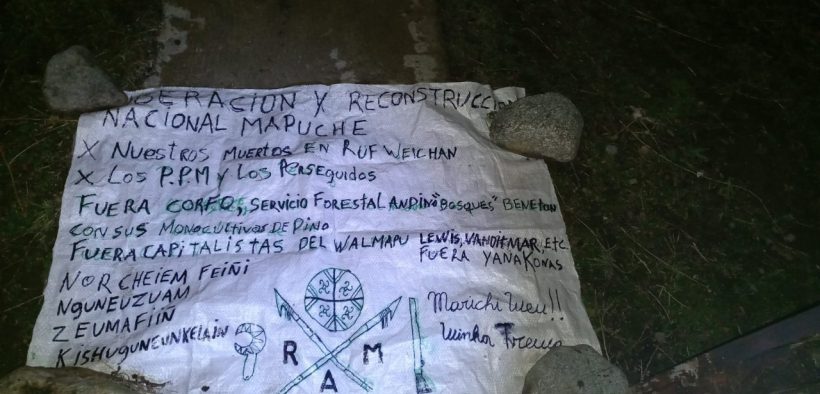 BERACION Y RECONSTRUCCIO
NACIONAL MAPUCHE
X NUESTROS MUERTOS EN RUF WEICHAN
X LOS P.P.M Y LOS PERSEGUIDOS
FUERA CORFO, SERVICIO FORESTAL ANDINO "BOSQUES" BENETON
CON SUS MONOCULTIVOS DE PINO
FUERA CAPITALISTAS DEL WALMAPU LEWIS, VANDITMAR, ETC.
FUERA YANAKONAS
NOR CHEIEM FEIÑI
NGUNEUZUAM
ZEUMAFIIN
KISHUGUNEUNKELAIN
R A M
Marichi Weu!!